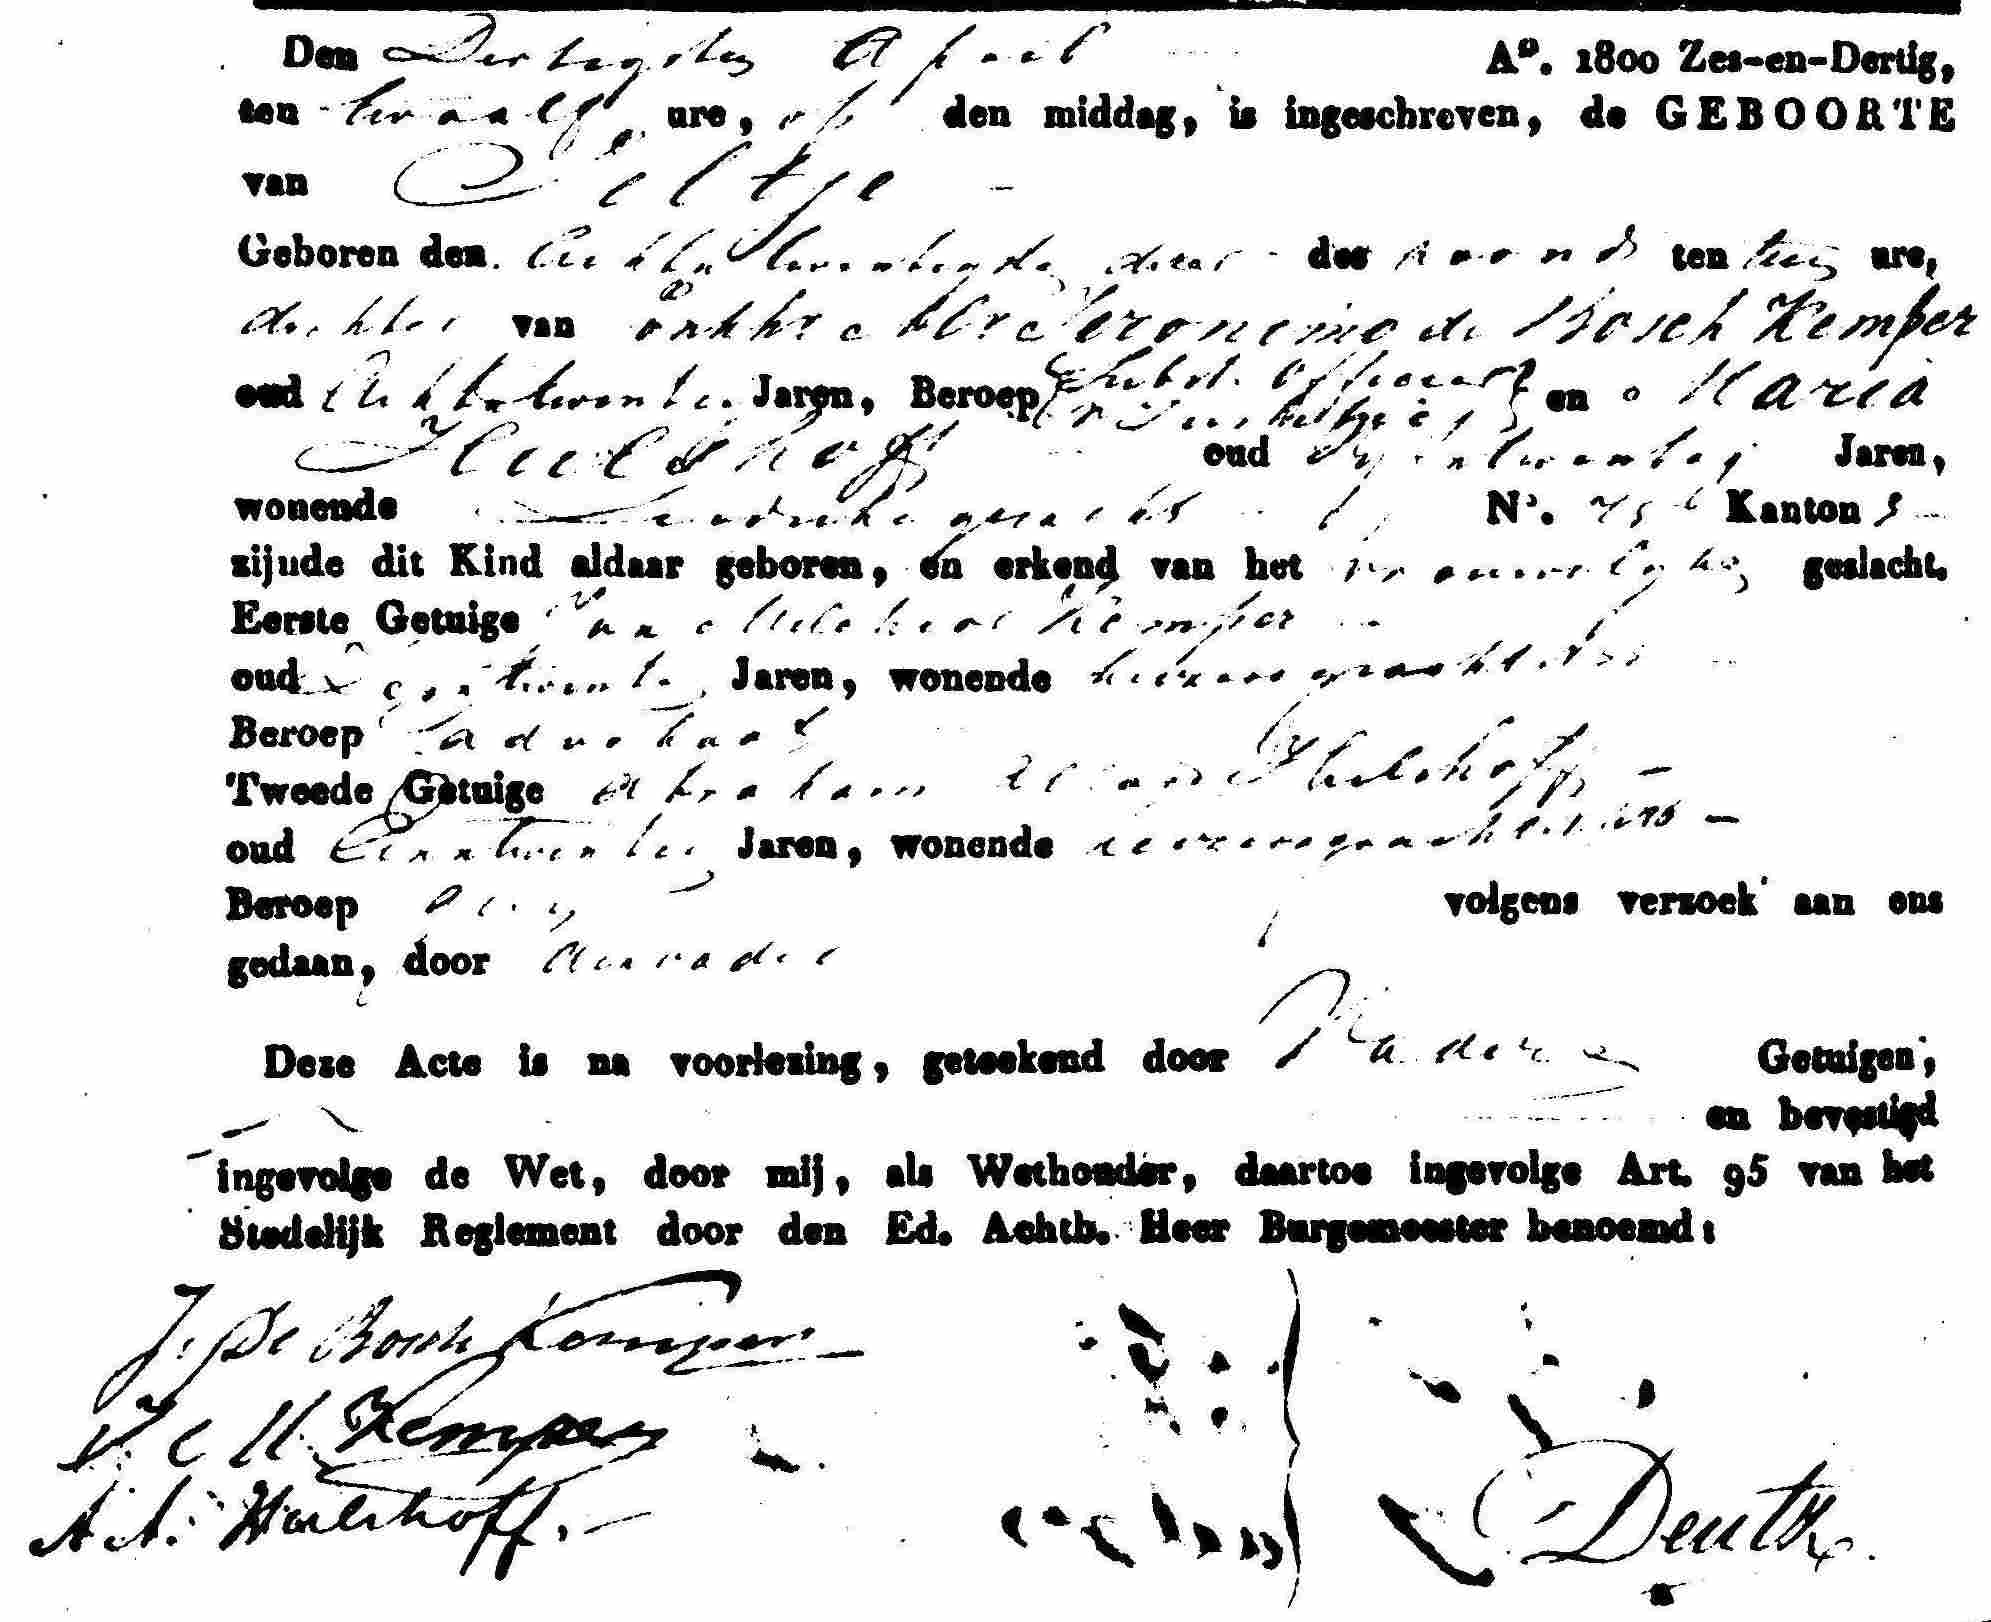 Den Dertigsten April Aº. 1800 Zes-en-Dertig,
ten twaalf ure, op den middag, is ingeschreven, de GEBOORTE
van Jeltje
Geboren den Achtentwintigsten dezer des avonds ten tien ure,
dochter van Jonkhr Mr Jeronimo de Bosch Kemper
oud Achtentwintig Jaren, Beroep Subst. Officier v Justitie en Maria
Hulshoff oud Jaren,
wonende Leidschegracht bij Nº. Kanton 3
zijnde dit Kind aldaar geboren, en erkend van het vrouwelijke geslacht.
Eerste Getuige Joan Melchior Kemper
oud Jaren, wonende keizersgracht
Beroep advokaat
Tweede Getuige Abraham Hulshoff
oud Eenentwintig Jaren, wonende keizersgracht
Beroep geen volgens verzoek aan ons
gedaan, door den vader
Deze Acte is na voorlezing, geteekend door Vader en Getuigen,
en bevestigd
ingevolge de Wet, door mij, als Wethouder, daartoe ingevolge Art. 95 van het
Stedelijk Reglement door den Ed. Achtb. Heer Burgemeester benoemd:
J. De Bosch Kemper
J. M. Kemper
A A. Hulshoff.
Deutz